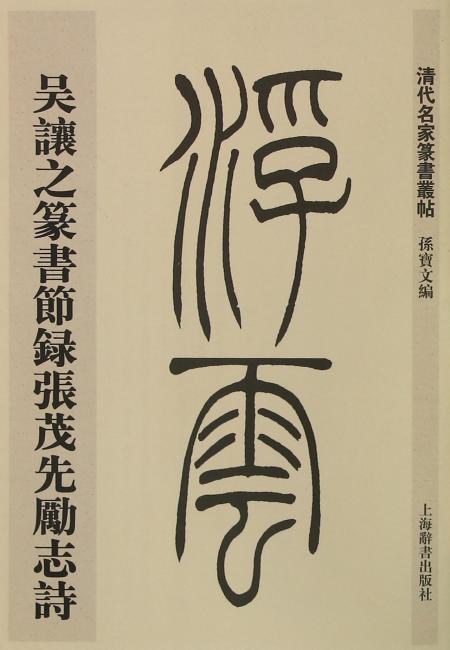 清代名家篆書叢帖
孫寶文編
上海辭書出版社
浮雲
吴讓之篆書節録張茂先勵志詩